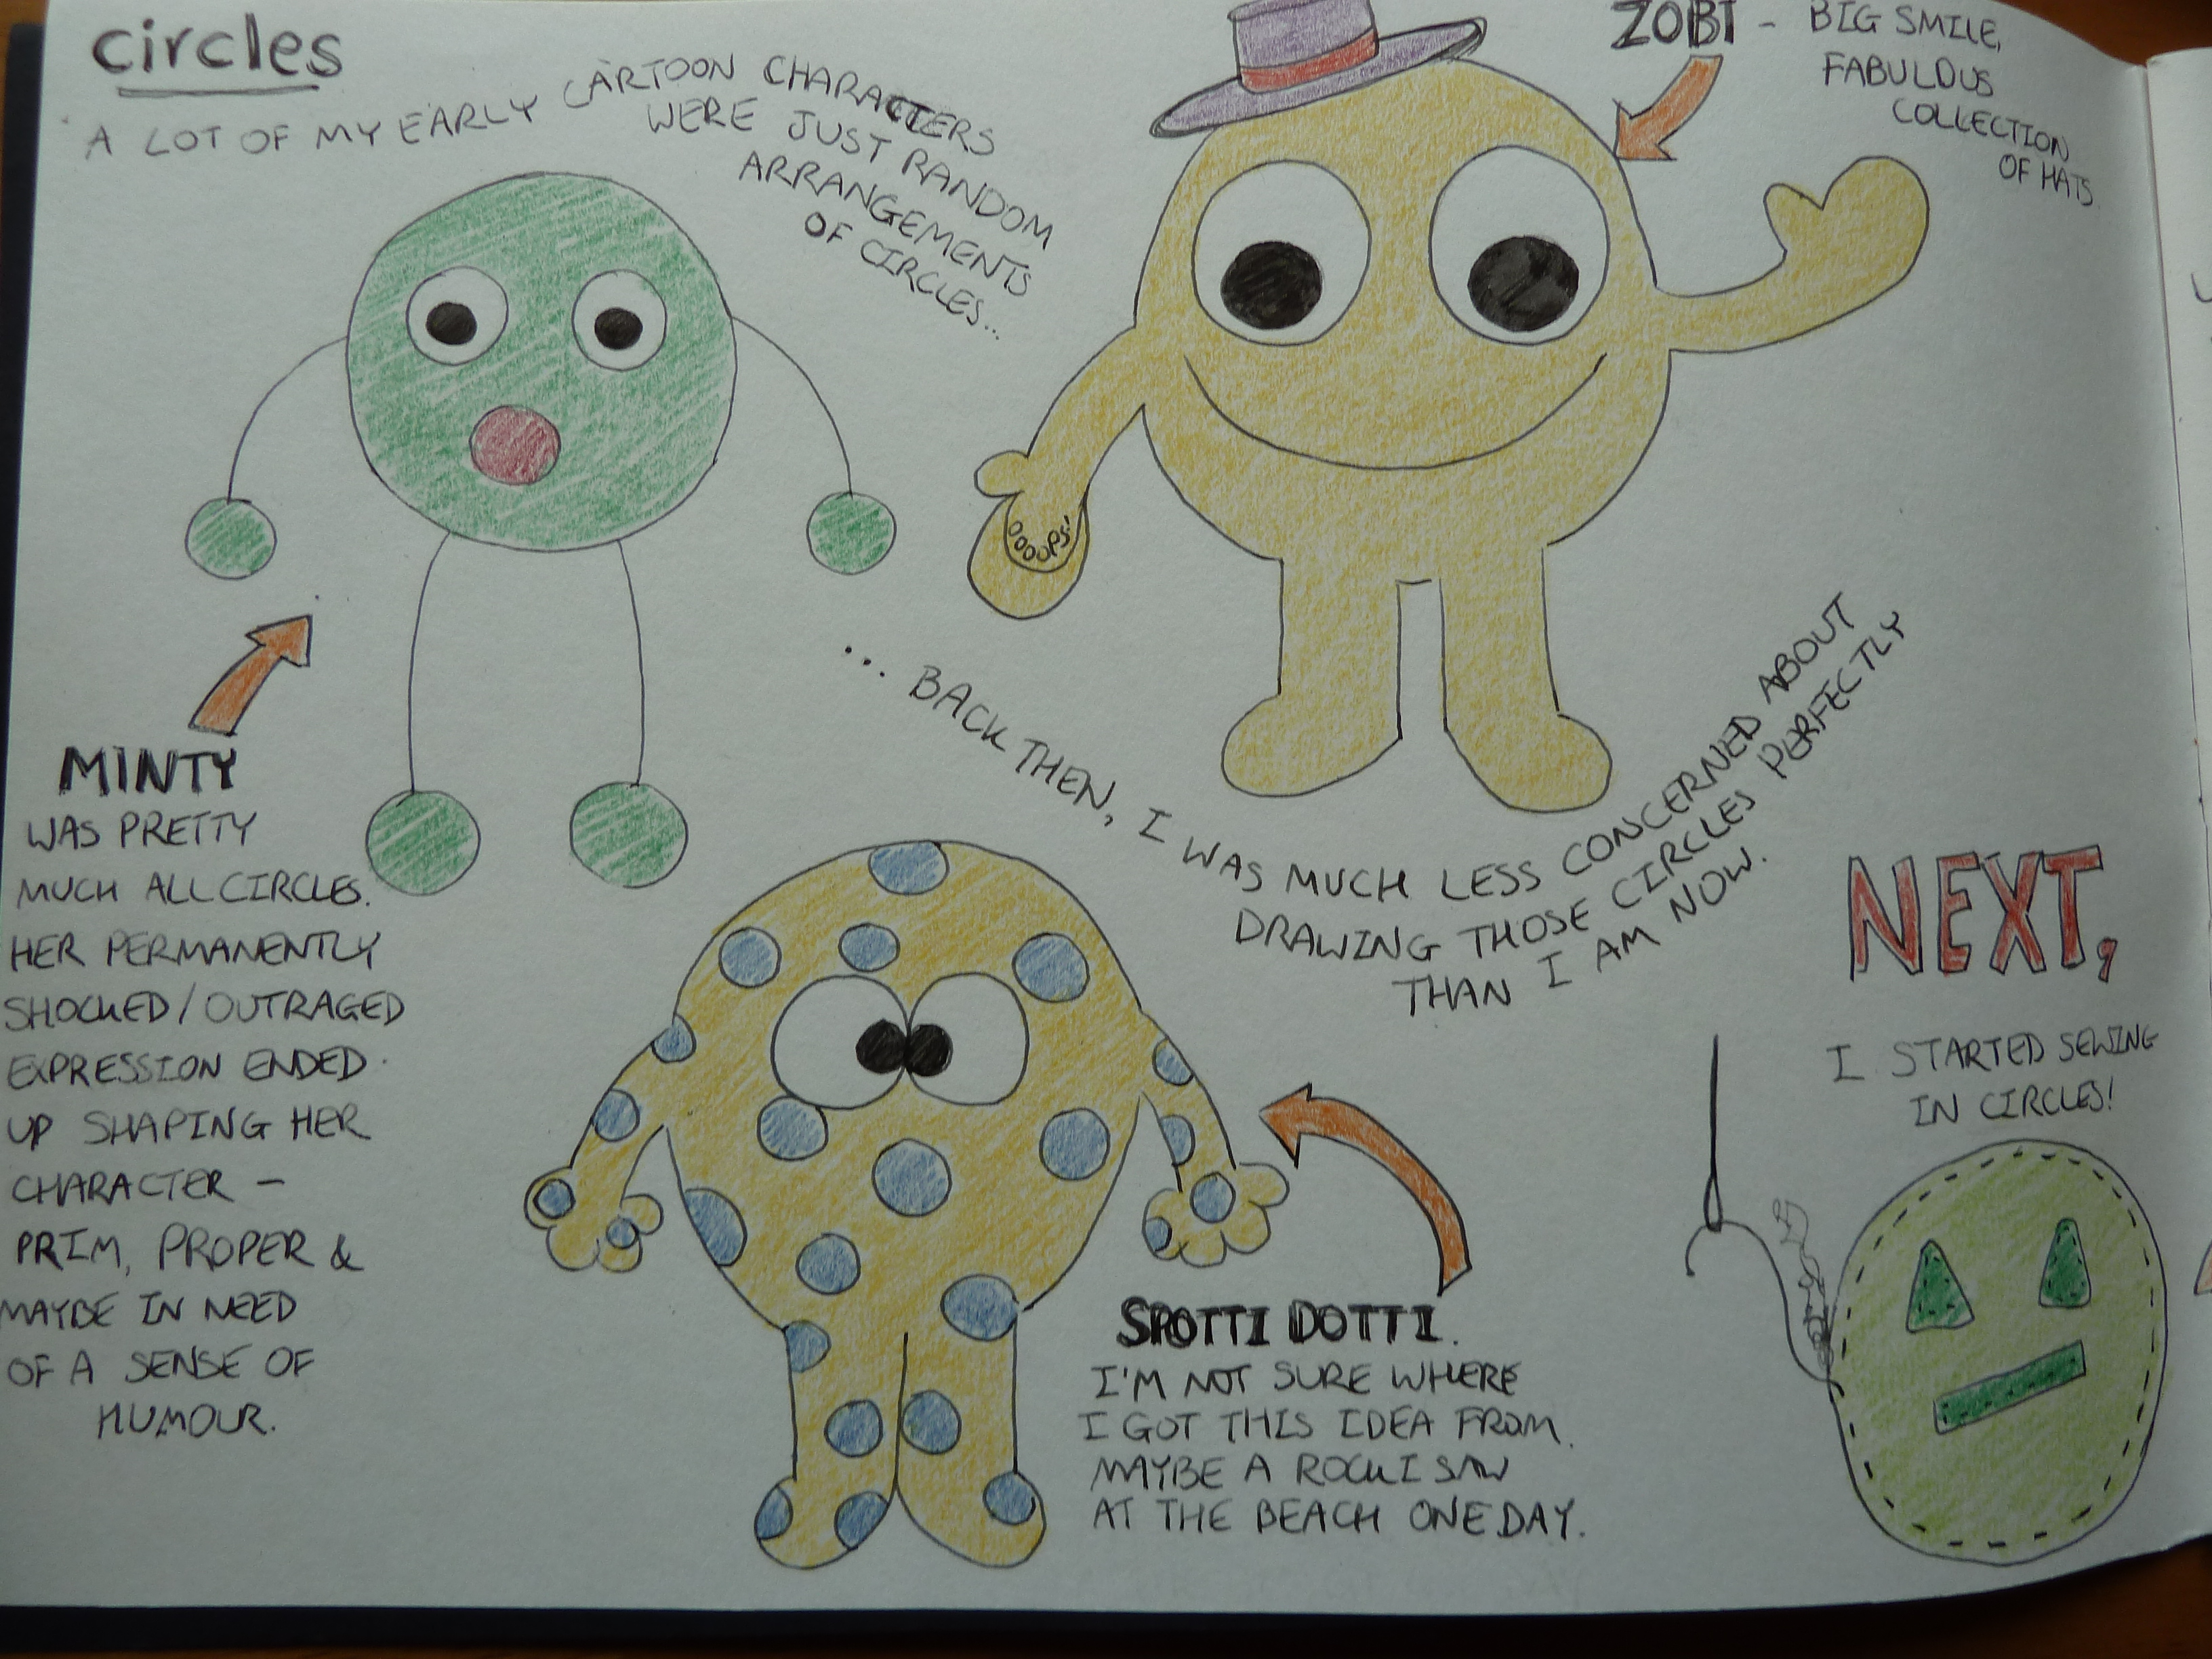 circles
A LOT OF MY EARLY CARTOON CHARACTERS
WERE JUST RANDOM
ARRANGEMENTS
OF CIRCLES...
ZOBI - BIG SMILE,
FABULOUS
COLLECTION
OF HATS
OOOOPS!
... BACK THEN, I WAS MUCH LESS CONCERNED ABOUT
DRAWING THOSE CIRCLES PERFECTLY
THAN I AM NOW.
MINTY
WAS PRETTY
MUCH ALL CIRCLES.
HER PERMANENTLY
SHOCKED/OUTRAGED
EXPRESSION ENDED
UP SHAPING HER
CHARACTER -
PRIM, PROPER &
MAYBE IN NEED
OF A SENSE OF
HUMOUR.
SPOTTI DOTTI.
I'M NOT SURE WHERE
I GOT THIS IDEA FROM.
MAYBE A ROCK I SAW
AT THE BEACH ONE DAY.
NEXT,
I STARTED SEWING
IN CIRCLES!